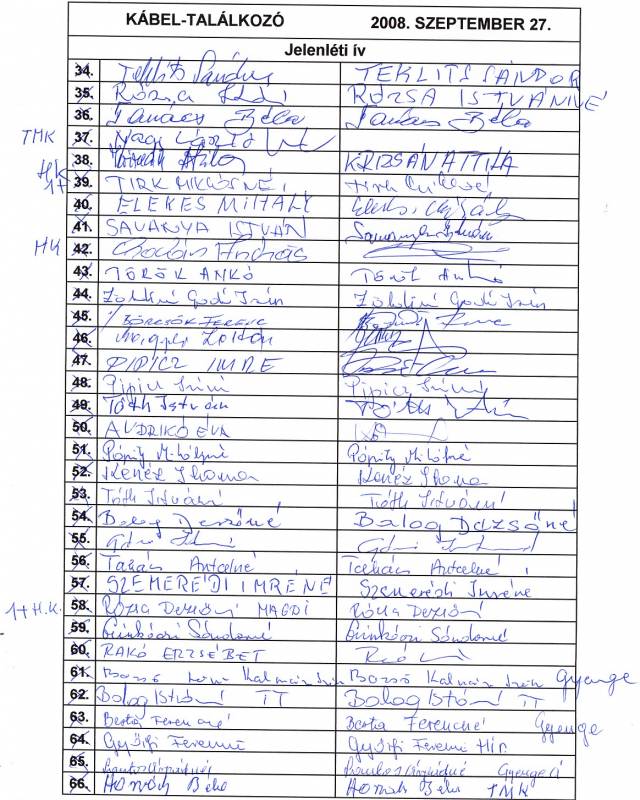 KÁBEL-TALÁLKOZÓ 2008. SZEPTEMBER 27.
Jelenléti ív
34. Teklits Sándor TEKLITS SÁNDOR
35. Rózsa RÓZSA ISTVÁNNÉ
36. Takács Béla Takács Béla
TMK 37. Nagy László
38. KRIZSÁN ATTILA
HK
1+ 39. TIRK MIKLÓSNÉ Tirk Miklósné
40. ELEKES MIHÁLY Elekes Mihály
41. SAVANYA ISTVÁN Savanya István
HK 42. András
43. TÖRÖK ANKÓ Török Ankó
44. Zöldiné Godó Irén Zöldiné Godó Irén
45. BÖRCSÖK FERENC
46. Zoltán
47. PIPICZ IMRE
48. Pipicz Imréné Pipicz Imréné
49. Tóth István Tóth István
50. ANDRIKÓ ÉVA
51. Pópity Mihályné Pópity Mihályné
52. Kenéz Ilona Kenéz Ilona
53. Tóth Istvánné Tóth Istvánné
54. Balog Dezsőné Balog Dezsőné
55.
56. Takács Antalné Takács Antalné
57. SZEMERÉDI IMRÉNÉ Szemerédi Imréné
1+H.K. 58. Rózsa Dezsőné MAGDI Rózsa Dezsőné
59. Sándorné Sándorné
60. RAKÓ ERZSÉBET
61. Bozsó Kalmár Irén Bozsó Kalmár Irén Gyenge
62. Balog Istvánné TT Balog Istvánné TT
63. Berta Ferencné Berta Ferencné Gyenge
64. Győrfi Ferencné Győrfi Ferencné Hír.
65. Árpádné Árpádné
66. Horváth Béla Horváth Béla TMK